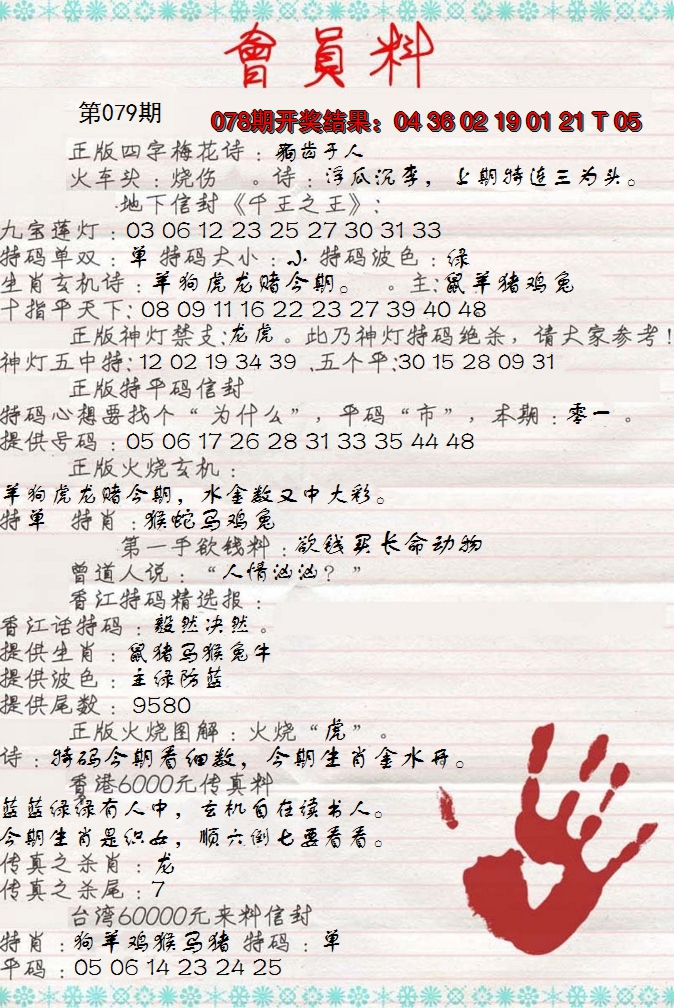 會員料
第079期
078期开奖结果：04 36 02 19 01 21 T 05
正版四字梅花诗：狗齿于人
火车头：烧伤 。诗：浮瓜沉李，上期特连三为头。
地下信封《千王之王》：
九宝莲灯：03 06 12 23 25 27 30 31 33
特码单双：单 特码大小：小 特码波色：绿
生肖玄机诗：羊狗虎龙赌今期。 。主：鼠羊猪鸡兔
十指平天下：08 09 11 16 22 23 27 39 40 48
正版神灯禁支：龙虎。此乃神灯特码绝杀，请大家参考！
神灯五中特：12 02 19 34 39 、五个平：30 15 28 09 31
正版特平码信封
特码心想要找个“为什么”，平码“市”，本期：零一 。
提供号码：05 06 17 26 28 31 33 35 44 48
正版火烧玄机：
羊狗虎龙赌今期，水金数又中大彩。
特单 特肖：猴蛇马鸡兔
第一手欲钱料：欲钱买长命动物
曾道人说：“人情汹汹？”
香江特码精选报：
香江话特码：毅然决然。
提供生肖：鼠猪马猴兔牛
提供波色：主绿防蓝
提供尾数：9580
正版火烧图解：火烧“虎”。
诗：特码今期看细数，今期生肖金水开。
香港6000元传真料
蓝蓝绿绿有人中，玄机自在读书人。
今期生肖是织女，顺六倒七要看看。
传真之杀肖：龙
传真之杀尾：7
台湾60000元来料信封
特肖：狗羊鸡猴马猪 特码：单
平码：05 06 14 23 24 25